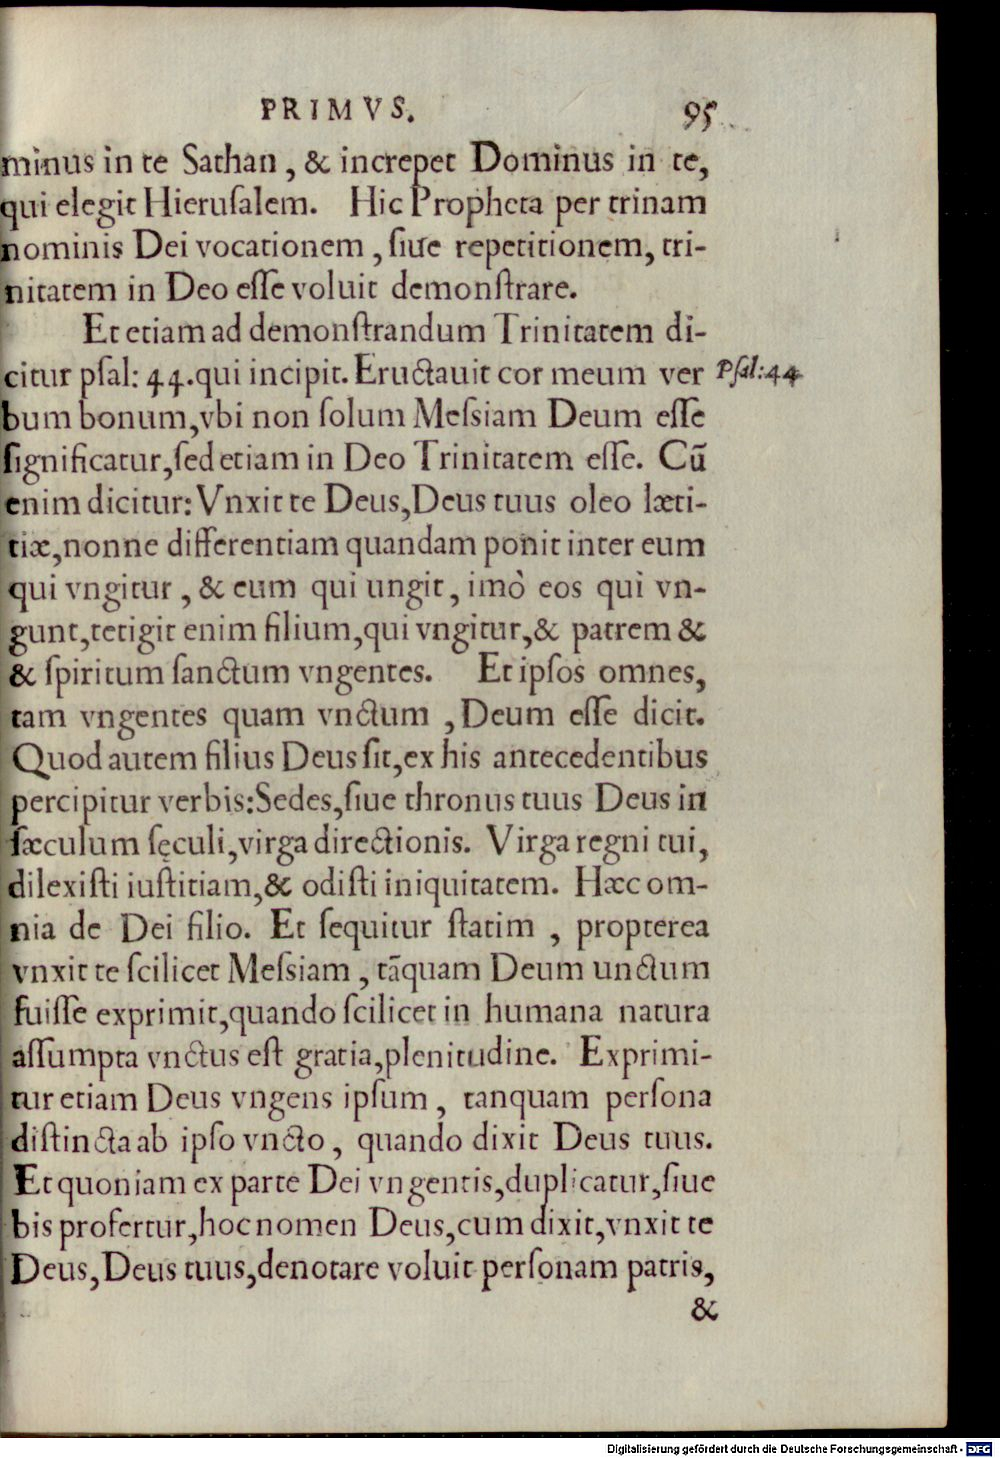 PRIMVS. 95
minus in te Sathan, & increpet Dominus in te,
qui elegit Hieruſalem. Hic Propheta per trinam
nominis Dei vocationem, ſiue repetitionem, tri-
nitatem in Deo eſſe voluit demonſtrare.
Et etiam ad demonſtrandum Trinitatem di-
citur pſal: 44. qui incipit. Eructauit cor meum ver Pſal: 44
bum bonum, vbi non ſolum Meſsiam Deum eſſe
ſignificatur, ſed etiam in Deo Trinitatem eſſe. Cū
enim dicitur: Vnxit te Deus, Deus tuus oleo læti-
tiæ, nonne differentiam quandam ponit inter eum
qui vngitur, & eum qui ungit, imò eos qui vn-
gunt, tetigit enim filium, qui vngitur, & patrem &
& ſpiritum ſanctum vngentes. Et ipſos omnes,
tam vngentes quam vnctum, Deum eſſe dicit.
Quod autem filius Deus ſit, ex his antecedentibus
percipitur verbis: Sedes, ſiue thronus tuus Deus in
ſæculum ſęculi, virga directionis. Virga regni tui,
dilexiſti iuſtitiam, & odiſti iniquitatem. Hæc om-
nia de Dei filio. Et ſequitur ſtatim, propterea
vnxit te ſcilicet Meſsiam, tāquam Deum unctum
fuiſſe exprimit, quando ſcilicet in humana natura
aſſumpta vnctus eſt gratia, plenitudine. Exprimi-
tur etiam Deus vngens ipſum, tanquam perſona
diſtincta ab ipſo vncto, quando dixit Deus tuus.
Et quoniam ex parte Dei vngentis, duplicatur, ſiue
bis profertur, hoc nomen Deus, cum dixit, vnxit te
Deus, Deus tuus, denotare voluit perſonam patris,
&
Digitalisierung gefördert durch die Deutsche Forschungsgemeinschaft - DFG